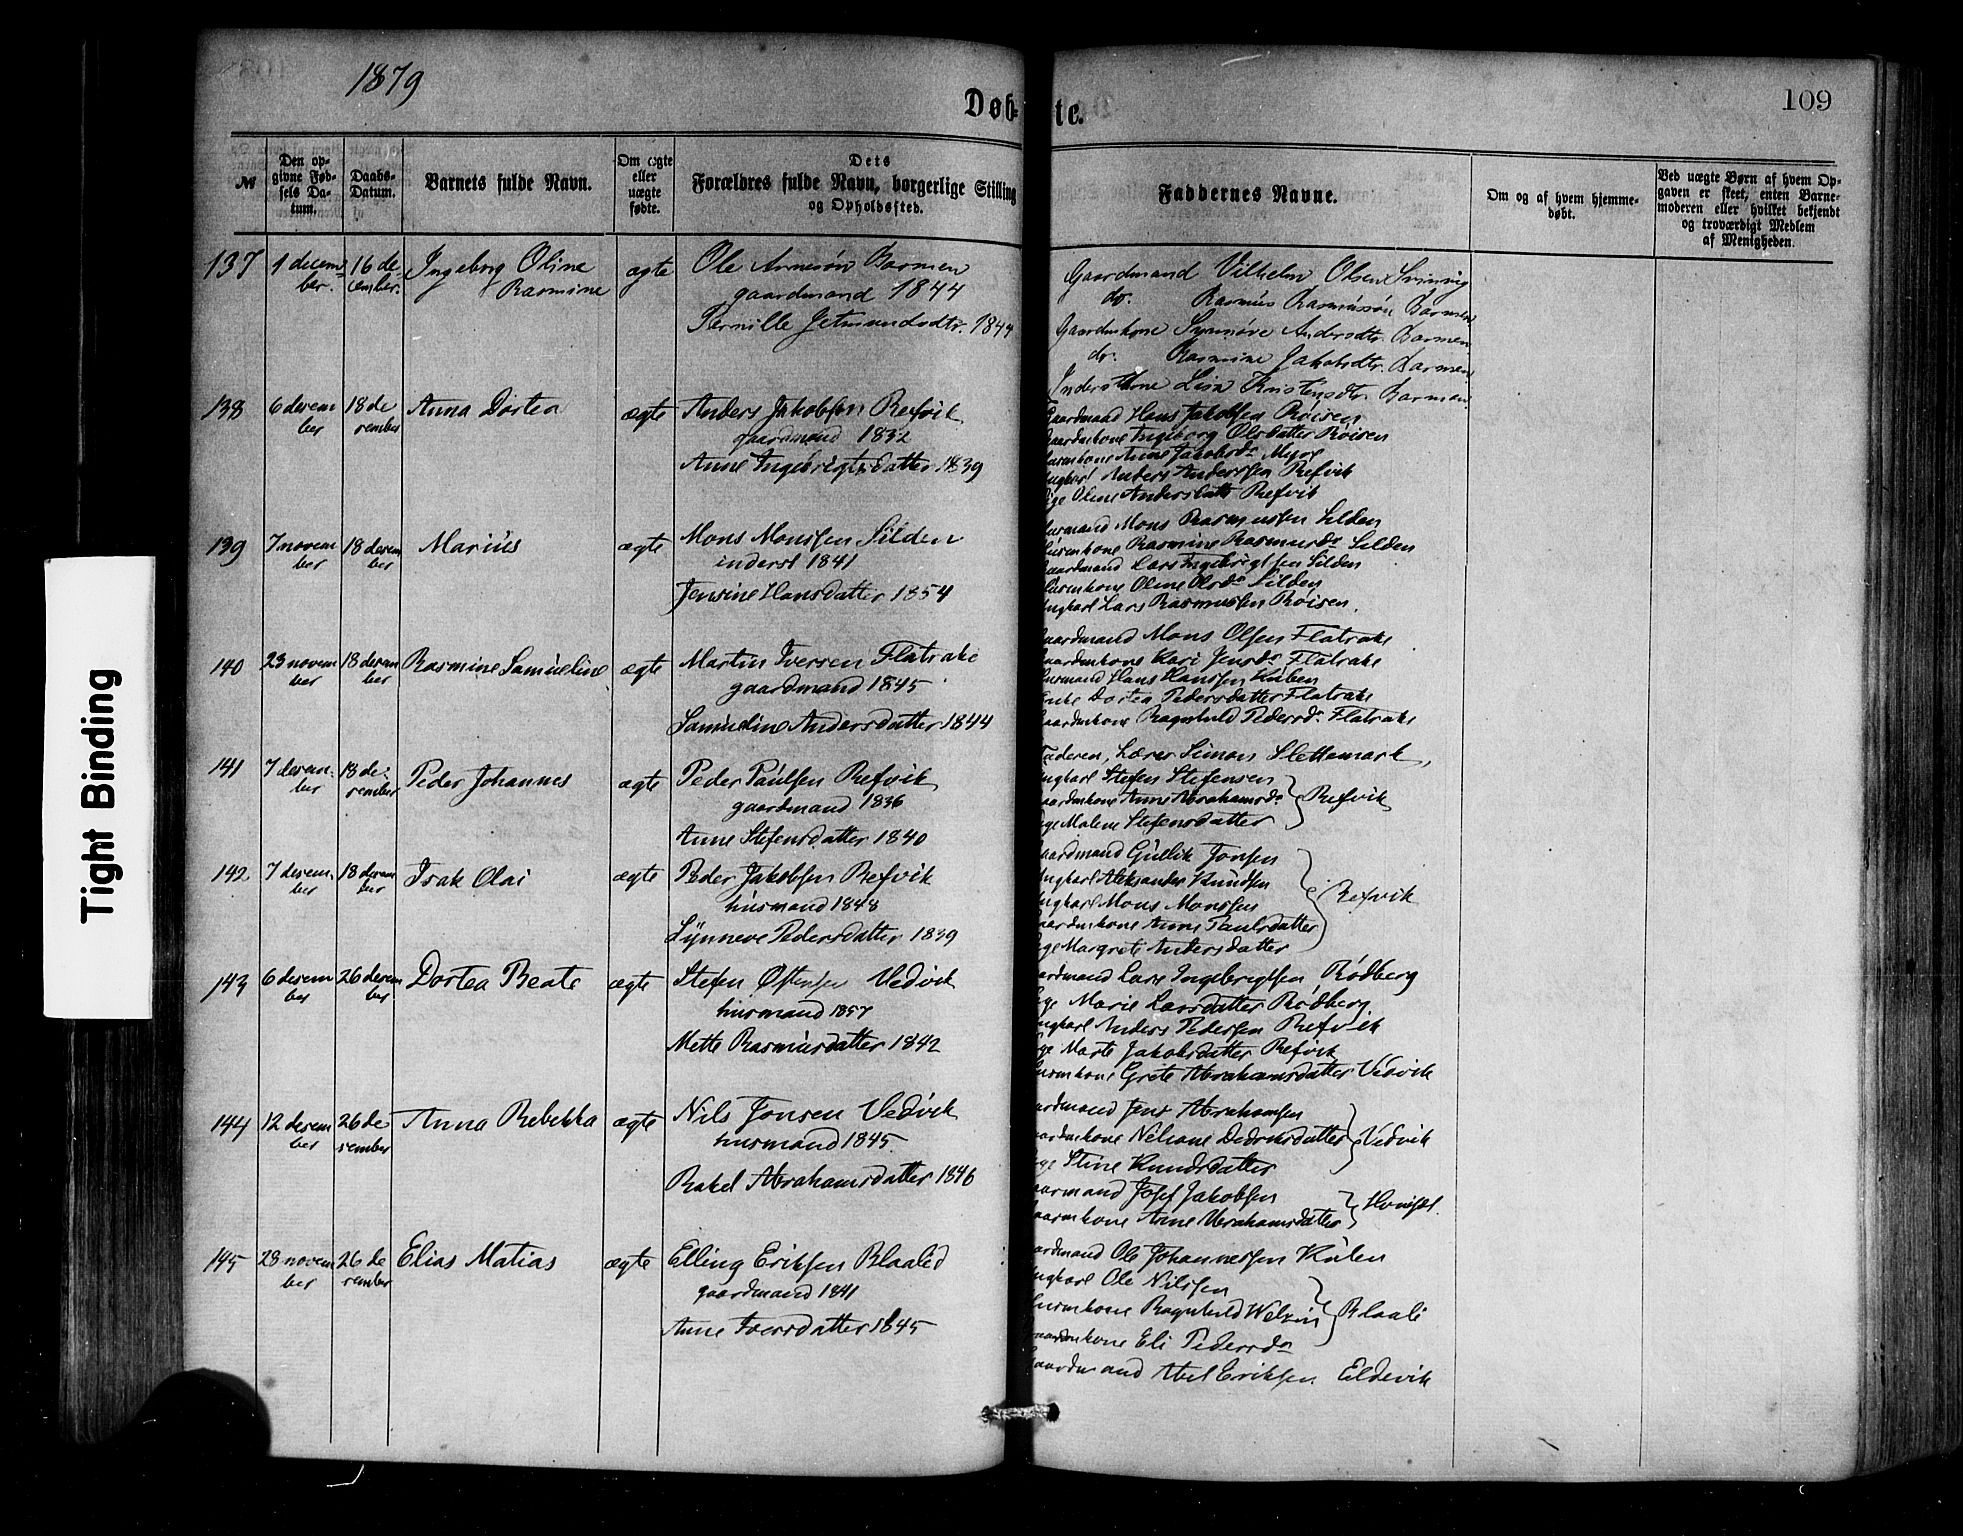 1879
Døb-
te.
109
№
Den op-
givne Fød-
sels Da-
tum.
Daabs-
Datum.
Barnets fulde Navn.
Om ægte
eller
uægte
fødte.
Dets
Forældres fulde Navn, borgerlige Stilling
og Opholdssted.
Faddernes Navne.
Om og af hvem hjemme-
døbt.
Ved uægte Børn af hvem Op-
gaven er skeet, enten Barne-
moderen eller hvilket bekjendt
og troværdigt Medlem
af Menigheden.
137
1 decem-
ber.
16 de-
cember.
Ingeborg Oline
Rasmine
ægte
Ole Arnesøn Barmen
gaardmand 1844
Pernille Jetmundsdtr. 1844
Gaardmand Vilhelm Olsen
do. Rasmus Rasmussøn Barmen
Gaardmkone Synnøve Andersdtr. Barmen
do. Rasmine Jakobsdtr. Barmen
Inderstkone Lisa Kristensdtr. Barmen
138
6 desem
ber
18 de
sember
Anna Dortea
ægte
Anders Jakobsen Refvik
gaardmand 1832
Anne Ingebrigtsdatter 1839
aardmand Hans Jakobsen Røisen
aardmkone Ingeborg Olsdatter Røisen
urmkone Anne Jakobsda
ungkarl Anders Anderssen Refvik
ige Oline Andersdatter Refvik
139
7 novem
ber
18 desem
ber
Marius
ægte
Mons Monssen Silden
inderst 1841
Jensine Hansdatter 1854
usmand Mons Rasmussen Silden
usmkone Rasmine Rasmusda Silden
aardmand Lars Ingebrigtsen Silden
usmkone Oline Olsda Silden
ungkarl Lars Rasmussen Røisen.
140
23 novem
ber
18 desem
ber
Rasmine Samueline
ægte
Martin Iversen Flatrake
gaardmand 1845
Samueline Andersdatter 1844
aardmand Mons Olsen Flatrake
aardmkone Kari Jensda Flatrake
usmand Hans Hanssen Kuben
enke Dortea Pedersdatter Flatrake
aardmkone Ragnhild Pedersda Flatrake
141
7 desem-
ber
18 de-
sember
Peder Johannes
ægte
Peder Paulsen Refvik
gaardmand 1836
Anne Stefensdatter 1840
Faderen, Lærer Simon Slettemark,
ungkarl Stefen Stefensen
aardmkone Anne Abrahamsda
ige Malene Stefensdatter
Refvik
142
7 desem-
ber
18 desem
ber
Isak Olai
ægte
Peder Jakobsen Refvik
husmand 1848
Synneve Pedersdatter 1839
aardmand Gullik Jonsen
ungkarl Aleksander Knudsen
ungkarl Mons Monssen
aardmkone Anne Paulsdatter
ige Margrete Andersdatter
Refvik
143
6 desem
ber
26 desem
ber
Dortea Beate
ægte
Stefen Østensen Vedvik
husmand 1857
Mette Rasmusdatter 1842
aardmand Lars Ingebrigtsen Rødberg
ige Marie Larsdatter Rødberg
ungkarl Anders Pedersen Refvik
ige Marte Jakobsdatter Refvik
usmkone Grete Abrahamsdatter Vedvik
144
12 desem
ber
26 de
sember
Anna Rebekka
ægte
Nils Jonsen Vedvik
husmand 1845
Rakel Abrahamsdatter 1846
aardmand Jens Abrahamsen
aardmkone Nelsane
ige Stine Knudsdatter
Vedvik
aarmand Josef Jakobsen
aarmkone Anne Abrahamsdatter
145
28 novem
ber
26 de
sember
Elias Matias
ægte
Elling Eriksen Blaalid
gaardmand 1841
Anne Iversdatter 1845
aardmand Ole Johannessen Kuben
ungkarl Ole Nilssen
usmkone Ragnhild
aardmkone Eli Pedersda
Blaali
Gaardmand Abel Eriksen Eldevik
Tight Binding